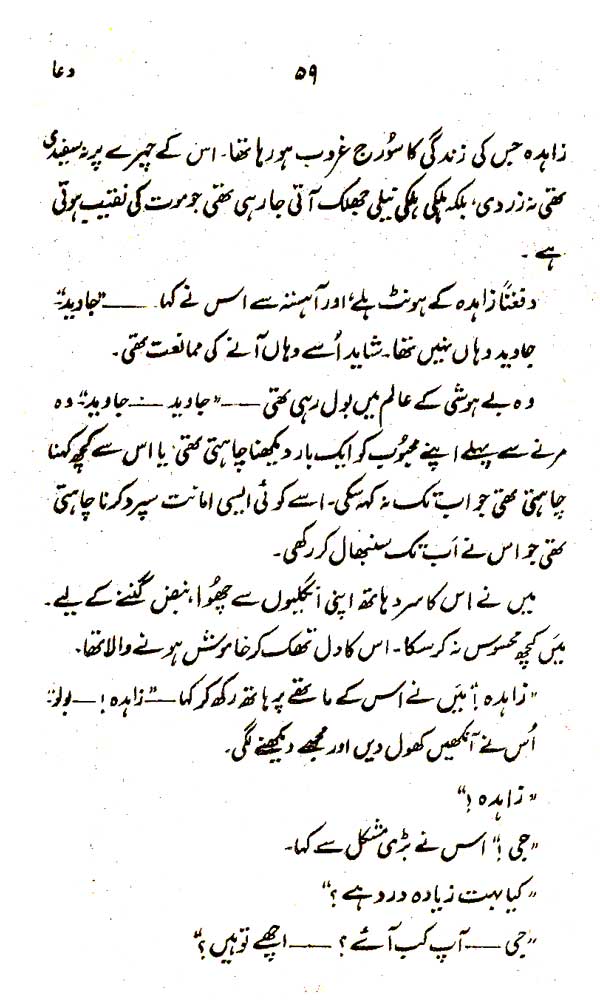 ۵۹ دعا
زاہدہ جس کی زندگی کا سُورج غروب ہو رہا تھا۔ اس کے چہرے پر نہ سفیدی
تھی نہ زردی، بلکہ ہلکی ہلکی نیلی جھلک آتی جا رہی تھی جو موت کی نقیب ہوتی
ہے۔
دفعتاً زاہدہ کے ہونٹ ہلے، اور آہستہ سے اس نے کہا —— "جاوید"
جاوید وہاں نہیں تھا۔ شاید اُسے وہاں آنے کی ممانعت تھی۔
وہ بے ہوشی کے عالم میں بول رہی تھی —— "جاوید —— جاوید" وہ
مرنے سے پہلے اپنے محبُوب کو ایک بار دیکھنا چاہتی تھی، یا اس سے کچھ کہنا
چاہتی تھی جو اب تک نہ کہہ سکی۔ اسے کوئی ایسی امانت سپرد کرنا چاہتی
تھی جو اس نے اَب تک سنبھال کر رکھی۔
میں نے اس کا سرد ہاتھ اپنی انگلیوں سے چھُوا، نبض گننے کے لیے۔
میَں کچھ محسوس نہ کر سکا۔ اس کا دل تھک کر خاموش ہونے والا تھا۔
"زاہدہ!" میَں نے اس کے ماتھے پر ہاتھ رکھ کر کہا —— "زاہدہ! —— بولو"
اُس نے آنکھیں کھول دیں اور مجھے دیکھنے لگی۔
"زاہدہ!"
"جی!" اس نے بڑی مشکل سے کہا۔
"کیا بہت زیادہ درد ہے؟"
"جی —— آپ کب آئے؟ —— اچھے تو ہیں؟"